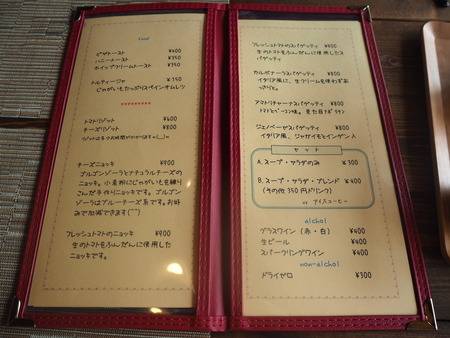 Food
ピザトースト ¥400
ハニートースト ¥350
ホイップクリームトースト ¥350
トルティージャ ¥350
じゃがいもたっぷりスペインオムレツ
トマトリゾット ¥600
チーズリゾット ¥800
チーズニョッキ ¥900
ゴルゴンゾーラとナチュラルチーズの
ニョッキ。小麦粉にじゃがいもを練り
こんだ手作りニョッキです。ゴルゴン
ゾーラはブルーチーズ系です。お好
みで加減できます(^^)
フレッシュトマトのニョッキ ¥900
生のトマトをふんだんに使用した
ニョッキです。
フレッシュトマトのスパゲッティ ¥800
生のトマトをふんだんに使用したス
パゲッティ
カルボナーラスパゲッティ ¥800
イタリア風に、生クリームを使わずあ
っさりと。
アマトリチャーナスパゲッティ ¥800
トマトとベーコン味。
ジェノベーゼスパゲッティ ¥800
イタリア風、ジャガイモとインゲン入
セット
A.スープ・サラダのみ ¥300
B.スープ・サラダ・ブレンド ¥400
(その他350円ドリンク)
or アイスコーヒー
alchol
グラスワイン(赤・白) ¥400
生ビール ¥400
スパークリングワイン ¥400
non-alchol
ドライゼロ ¥300